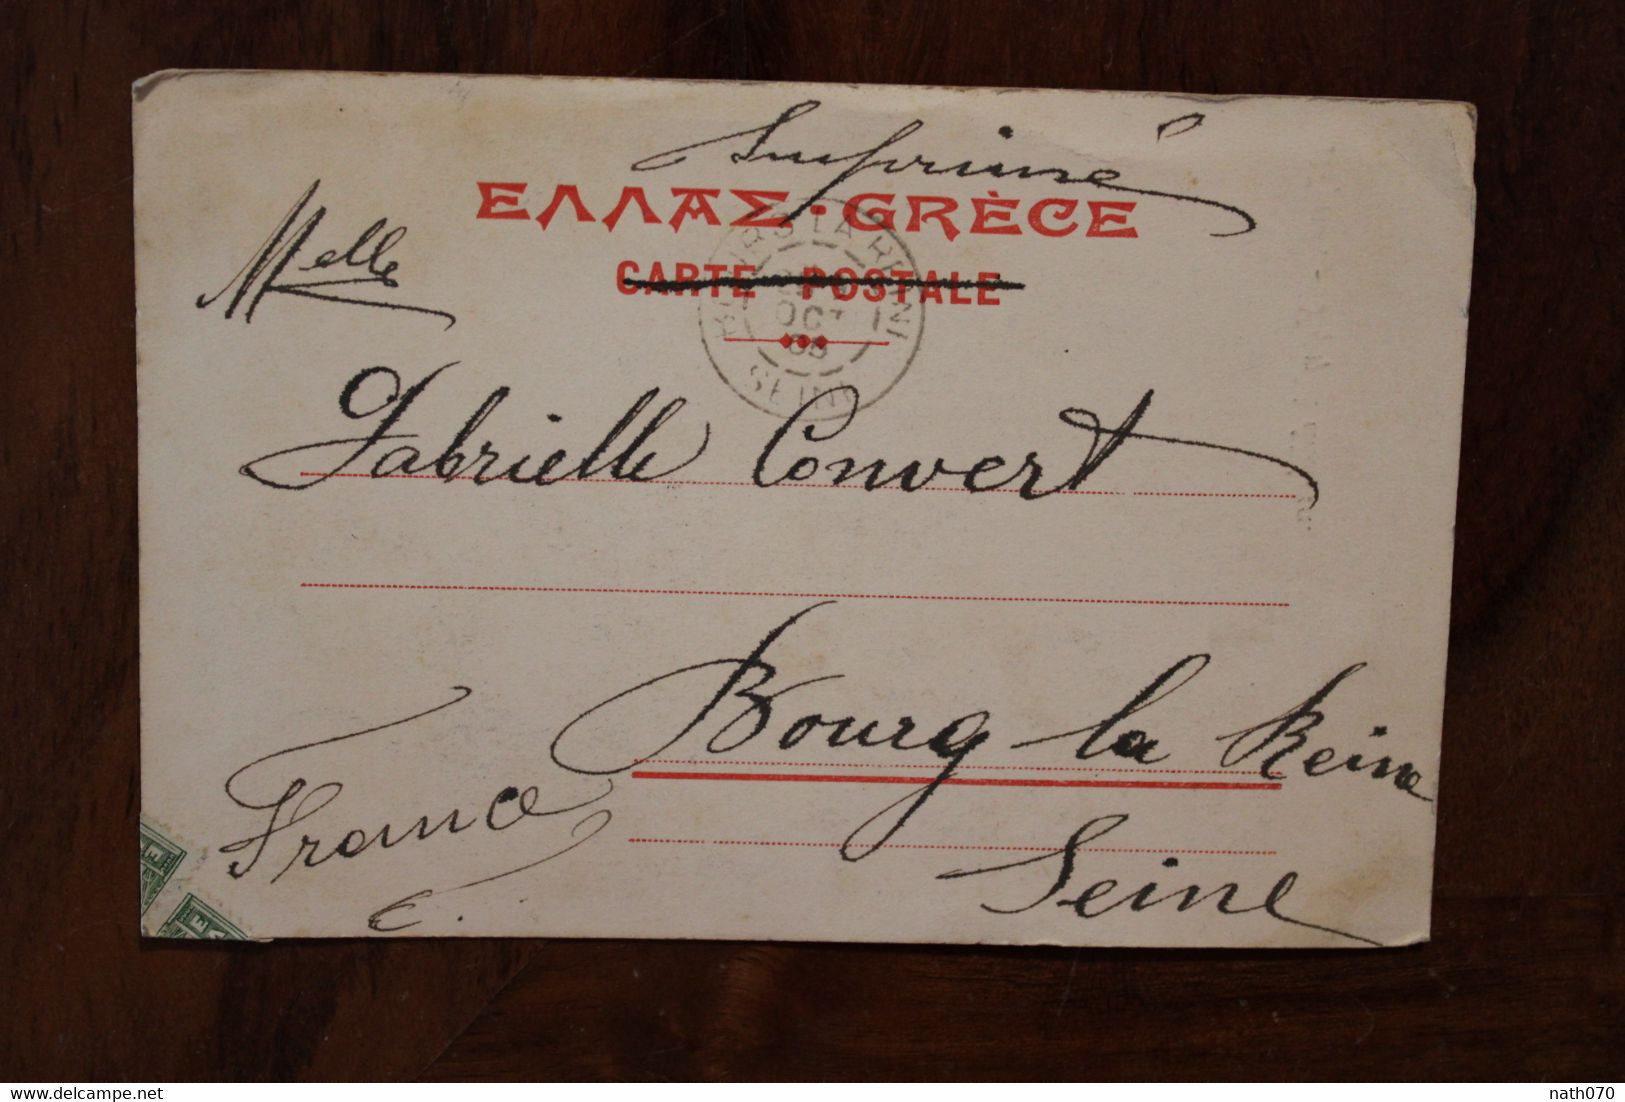 Imprimé
ΕΛΛΑΣ·GRÈCE
CARTE POSTALE
Melle
OCT
SEINE
Gabrielle Convert
Bourg-la Reine
France
Seine
delcampe.net
nath070